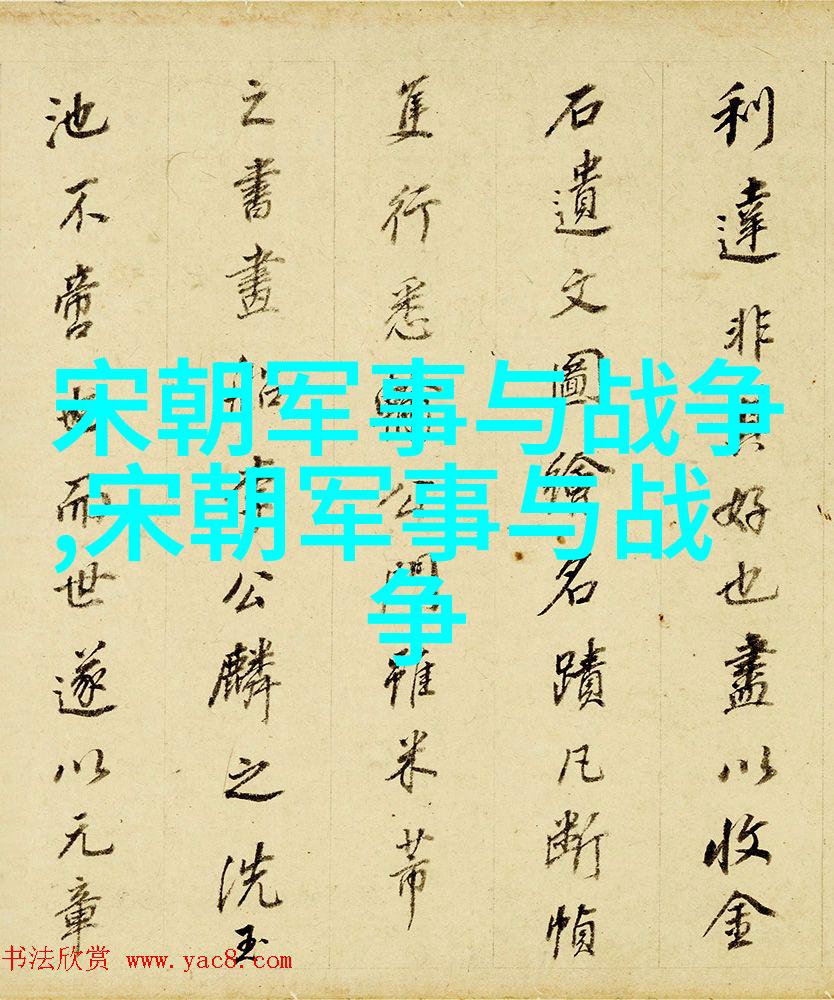 利達非其好也盡以收金
石遺文圖繪名蹟凡斷幀
隻行悉公閣雖米芾
之書畫船李公麟之洗玉
池不啻也而世遂以元章
宋朝军事与战争
,宋朝军事与战
争
书法欣赏 www.yac8.com